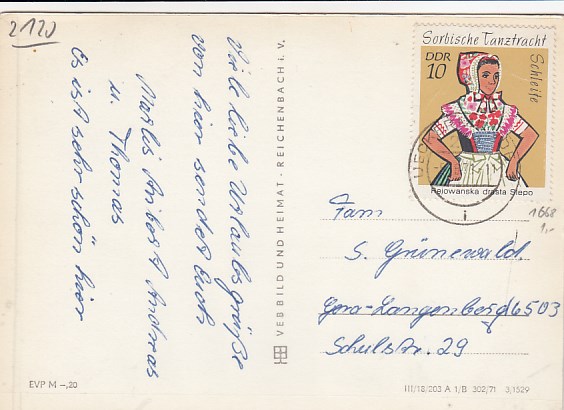 2120
Viele liebe Urlaubsgrüße
von hier sendet Euch
Marlis Andreas
u. Thomas
Es ist sehr schön hier
VEB BILD UND HEIMAT · REICHENBACH i. V.
Sorbische Tanztracht
DDR
10
Schleife
Rejowanska drasta Slepo
i
1668
1,-
Fam
S. Grünewald.
Gera-Langenberg 6503
Schulstr. 29
EVP M –,20
III/18/203 A 1/B 302/71 3/1529